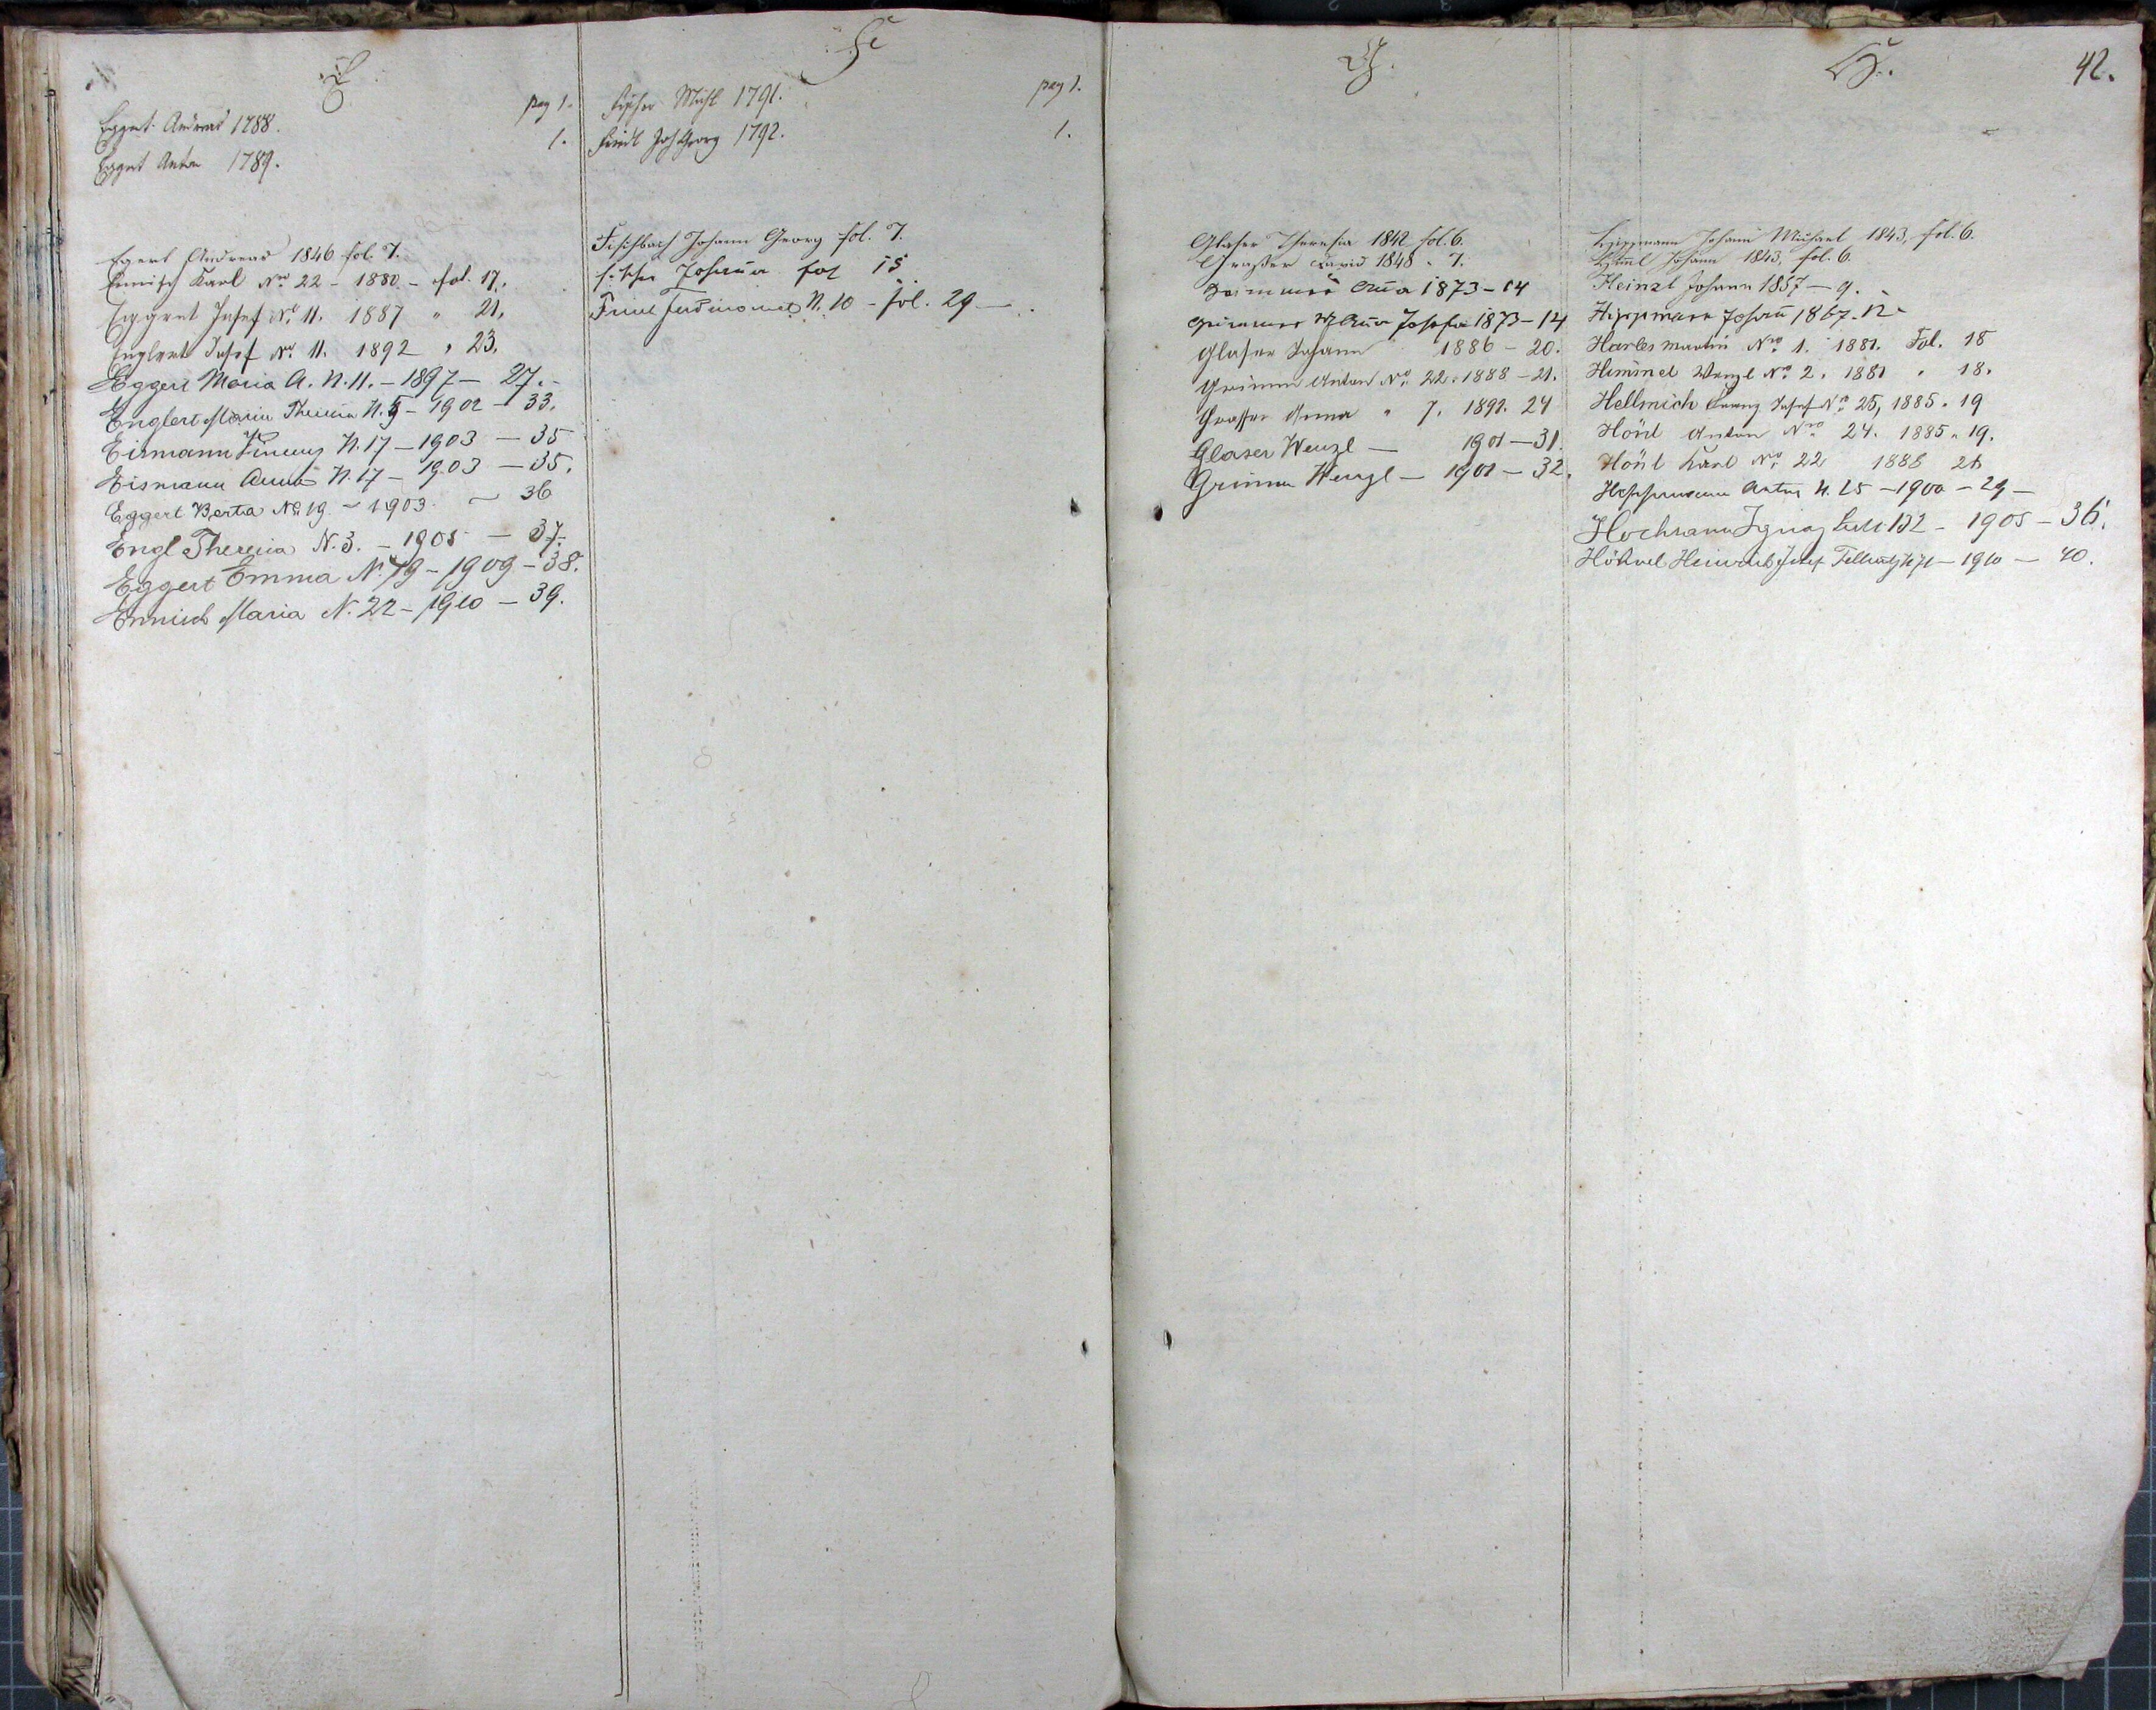 E.
Eggert Andreas 1788. pag 1.
Eggert Anton 1789. 1.
Egert Andreas 1846 fol. 7.
Ennisch Karl Nro 22 - 1880 - fol. 17.
Eggert Josef Nro 11. 1887 " 21.
Englert Josef Nro 11. 1892 " 23.
Eggert Maria A. N. 11. - 1897 - 27.
Englert Maria Theresia N. 5 - 1902 - 33.
Eismann Vinzenz N. 17 - 1903 - 35
Eismann Anna N. 17 - 1903 - 35.
Eggert Berta No 19 - 1903 - 36
Engl Theresia N. 3. - 1905 - 37.
Eggert Emma N. 19 - 1909 - 38.
Ennisch Maria N. 22 - 1910 - 39.
F
Fischer Michl 1791. pag 1.
Joh Georg 1792. 1.
Fischbach Johann Georg fol. 7.
Fischer Johanna fol 15
Ferdinand N. 10 - fol. 29 -
G.
Glaser Theresia 1842 fol. 6.
Graßer David 1848 " 7.
Anna 1873 - 14
Anna Josefa 1873 - 14
Glaser Johann 1886 - 20.
Grimm Anton No 22. 1888 - 21.
Grasser Anna " 7. 1892. 24
Glaser Wenzl - 1901 - 31.
Grimm Wenzl - 1901 - 32.
H. 42.
Hippmann Johann Michael 1843, fol. 6.
Johann 1843, fol. 6.
Heinzl Johann 1857 - 9.
Hippmann Johann 1867. 12
Harles Martin Nro 1. 1881. Fol. 18
Himmel Wenzl No 2. 1881 " 18.
Hellmich Franz Josef Nro 25, 1885. 19
Hönl Anton Nro 24. 1885 " 19.
Hönl Karl Nro 22 1888 21
Anton N. 25 - 1900 - 29 -
Hochmann Ignaz 132 - 1905 - 36.
Heinrich Josef - 1910 - 40.